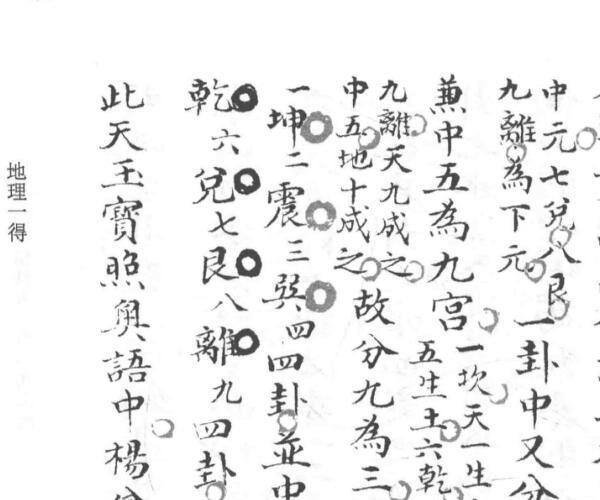 中元七兌八艮
九離為下元
一卦中又分
兼中五為九宮
一坎天一生
五生土六乾
九離天九成之
中五地十成之
故分九為三
一坤二震三巽四四卦並中
乾六兌七艮八離九四卦
此天玉寶照奧語中楊
地理一得